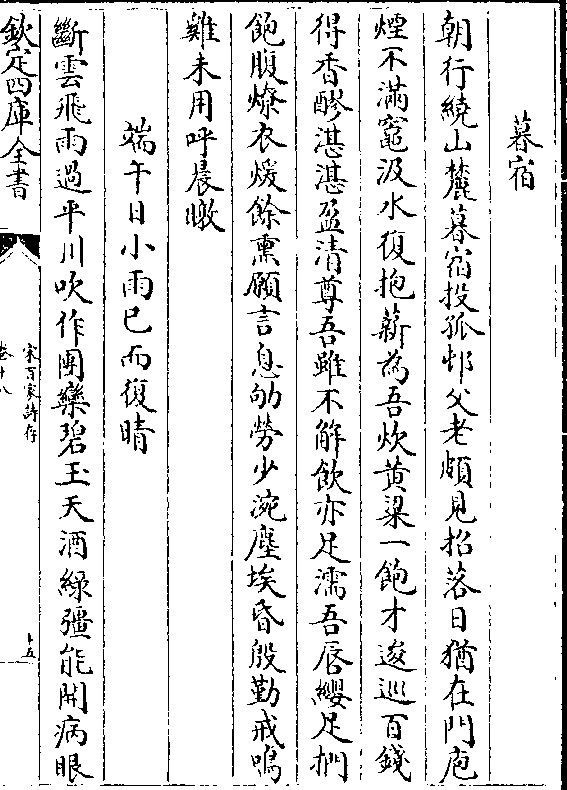 暮宿
朝行繞山麓暮宿投孤邨父老頗見招落日猶在門庖
煙不滿竈汲水復抱薪為吾炊黄粱一飽才逡巡百錢
得香醪湛湛盈清尊吾雖不解飲亦足濡吾唇纓足捫
飽腹燎衣煖餘熏願言息劬勞少浣塵埃昏殷勤戒鳴
雞未用呼晨暾
端午日小雨已而復晴
斷雲飛雨過平川吹作團欒碧玉天酒緑彊能開病眼
欽定四庫全書
宋百家詩存
卷十八
十五